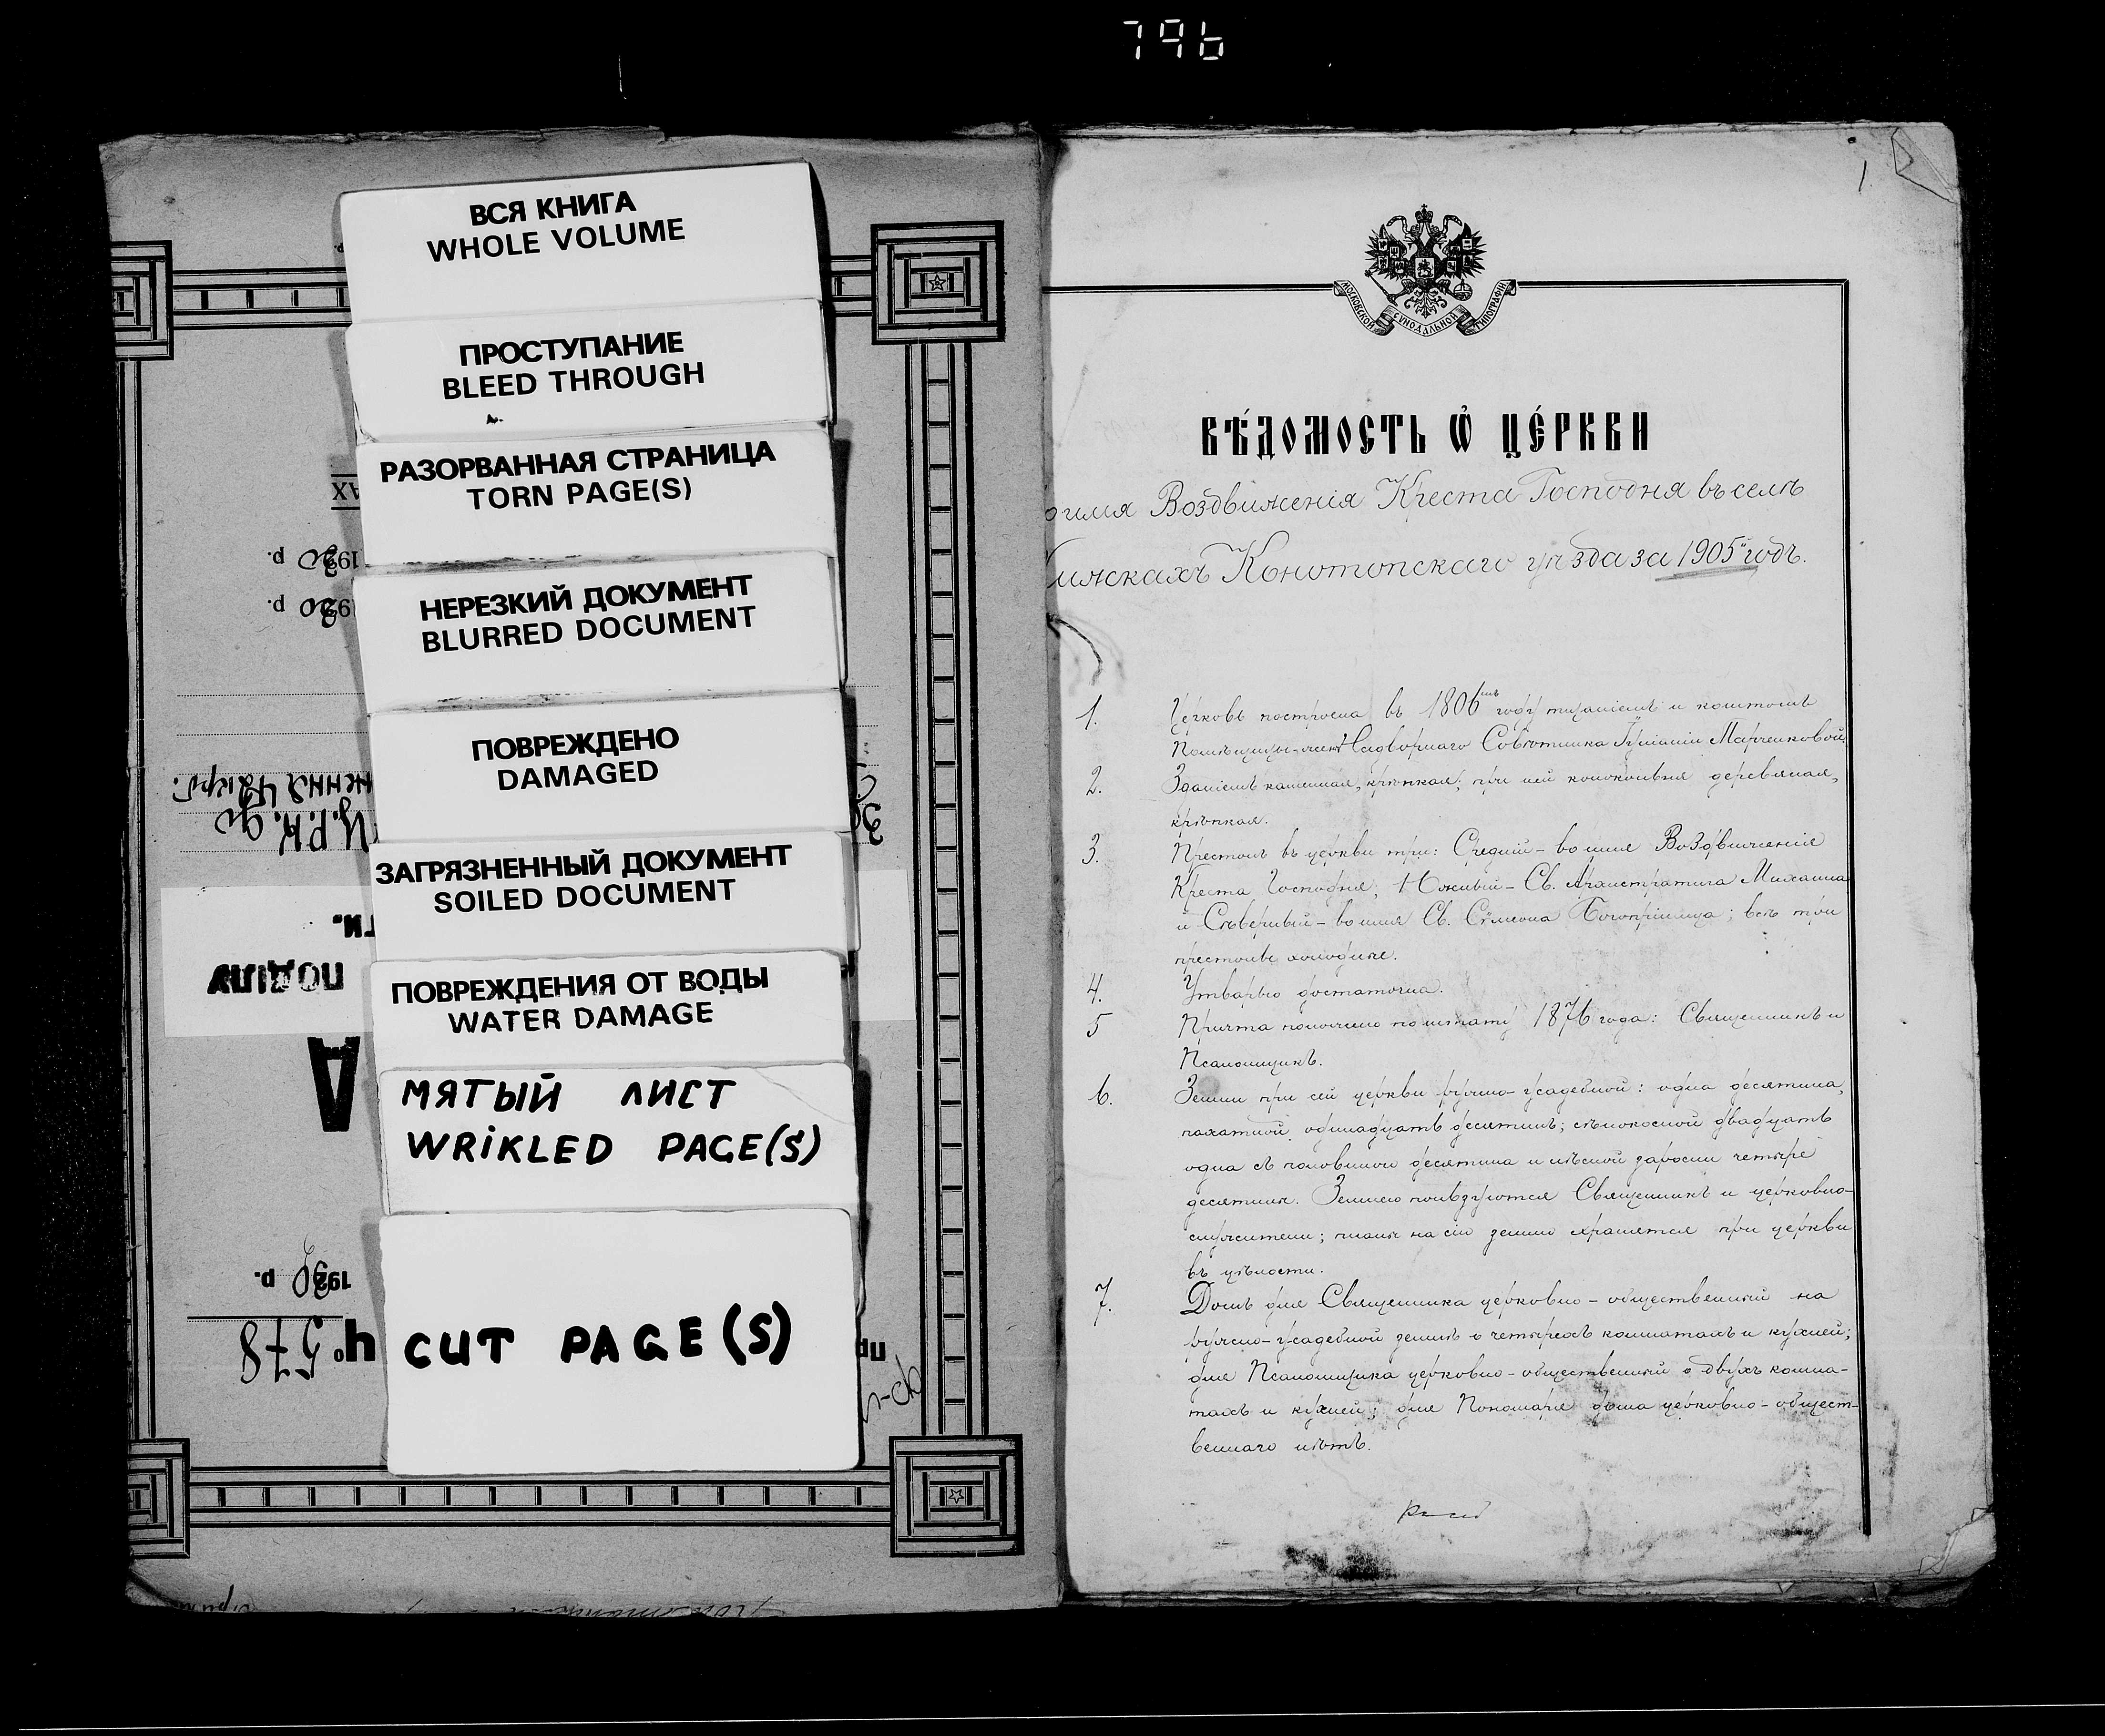 796
ВСЯ КНИГА
WHOLE VOLUME
ПРОСТУПАНИЕ
BLEED THROUGH
РАЗОРВАННАЯ СТРАНИЦА
TORN PAGE(S)
НЕРЕЗКИЙ ДОКУМЕНТ
BLURRED DOCUMENT
ПОВРЕЖДЕНО
DAMAGED
ЗАГРЯЗНЕННЫЙ ДОКУМЕНТ
SOILED DOCUMENT
ПОВРЕЖДЕНИЯ ОТ ВОДЫ
WATER DAMAGE
МЯТЫЙ ЛИСТ
WRIKLED PAGE(S)
CUT PAGE(S)
АХ
1920 р.
1920 р.
поділу
Ч° 578
1.
МОСКОВСКОЙ СУНОДАЛЬНОЙ ТИПОГРАФІИ
ВѢ́ДОМОСТЬ Ѽ ЦЕ́РКВИ
имя Воздвиженія Креста Господня въ селѣ
Конотопскаго уѣзда за 1905 годъ.
1. Церковь построена въ 1806мъ году тщаніемъ и коштомъ
Помѣщицы-жены Надворнаго Совѣтника Марченковой.
2. Зданіемъ каменная, крѣпкая; при ней колокольня деревяная,
крѣпкая.
3. Престолъ въ церкви три: Средній - во имя Воздвиженіе
Креста Господня, Южный - Св. Архистратига Михаила
и Сѣверный - во имя Св. Сѵмеона Богопріимца; всѣ три
престолы холодные.
4. Утварью достаточна.
5 Причта положено по штату 1876 года: Священникъ и
Псаломщикъ.
6. Земли при сей церкви ружно-усадебной: одна десятина,
пахатной одинадцать десятинъ; сѣнокосной двадцать
одна съ половиною десятина и лѣсной заросли четыре
десятины. Землею пользуются Священникъ и церковно-
служители; планы на сію землю хранятся при церкви
въ цѣлости.
7. Домъ для Священника церковно-общественный на
ружно-усадебной землѣ о четырехъ комнатахъ и кухней;
для Псаломщика церковно-общественный о двухъ комна-
тахъ и кухней; для Пономаря дома церковно-общест-
веннаго нѣтъ.